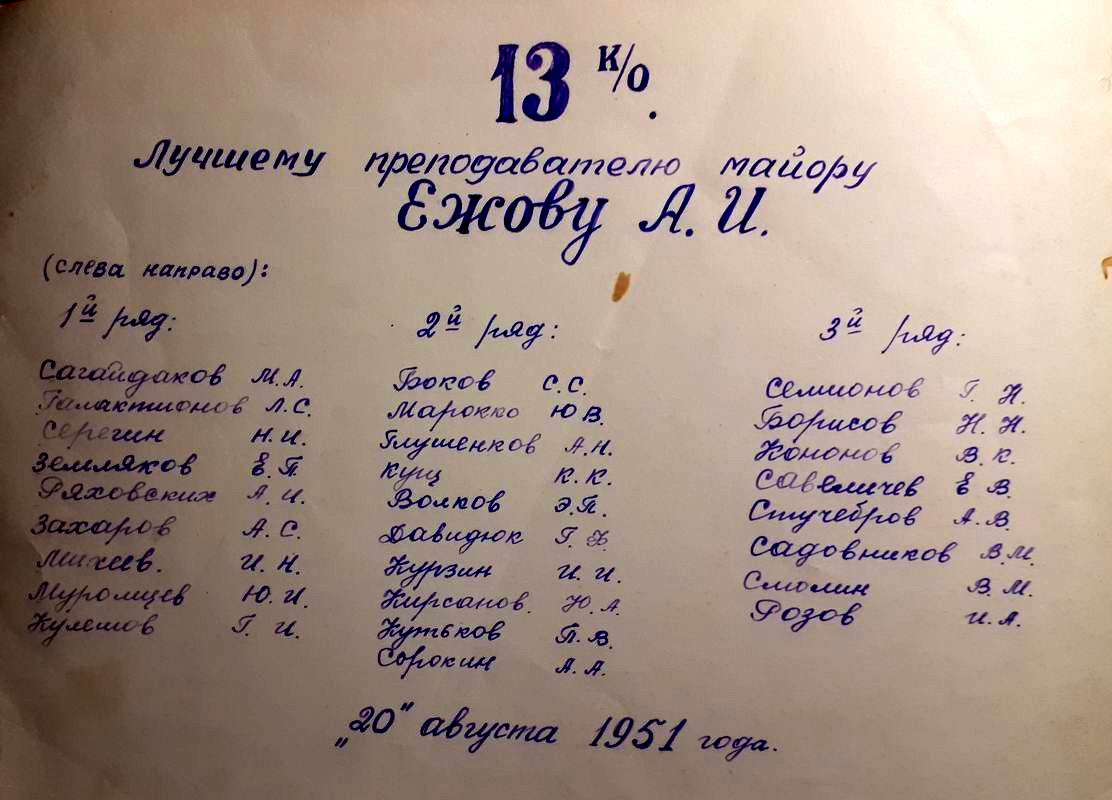 13 к/о.
Лучшему преподавателю майору
Ежову А. И.
(слева направо):
1й ряд:
Сагайдаков М. А.
Галактионов Л. С.
Серегин Н. И.
Земляков Е. П.
Ряховских А. И.
Захаров А. С.
Михеев. И. Н.
Муромцев Ю. И.
Кулешов Г. И.
2й ряд:
Боков С. С.
Марокко Ю В.
Глушенков А. Н.
Кущ К. К.
Волков Э. П.
Давидюк Г.
Курзин И. И.
Кирсанов. Ю. А
Кутьков П. В.
Сорокин А. А.
3й ряд:
Семионов Г. Н.
Борисов Н. Н.
Кононов В. К.
Савеличев Е В.
Стучебров А. В.
Садовников В. М.
Смолин В. М.
Розов И. А.
„20" августа 1951 года.